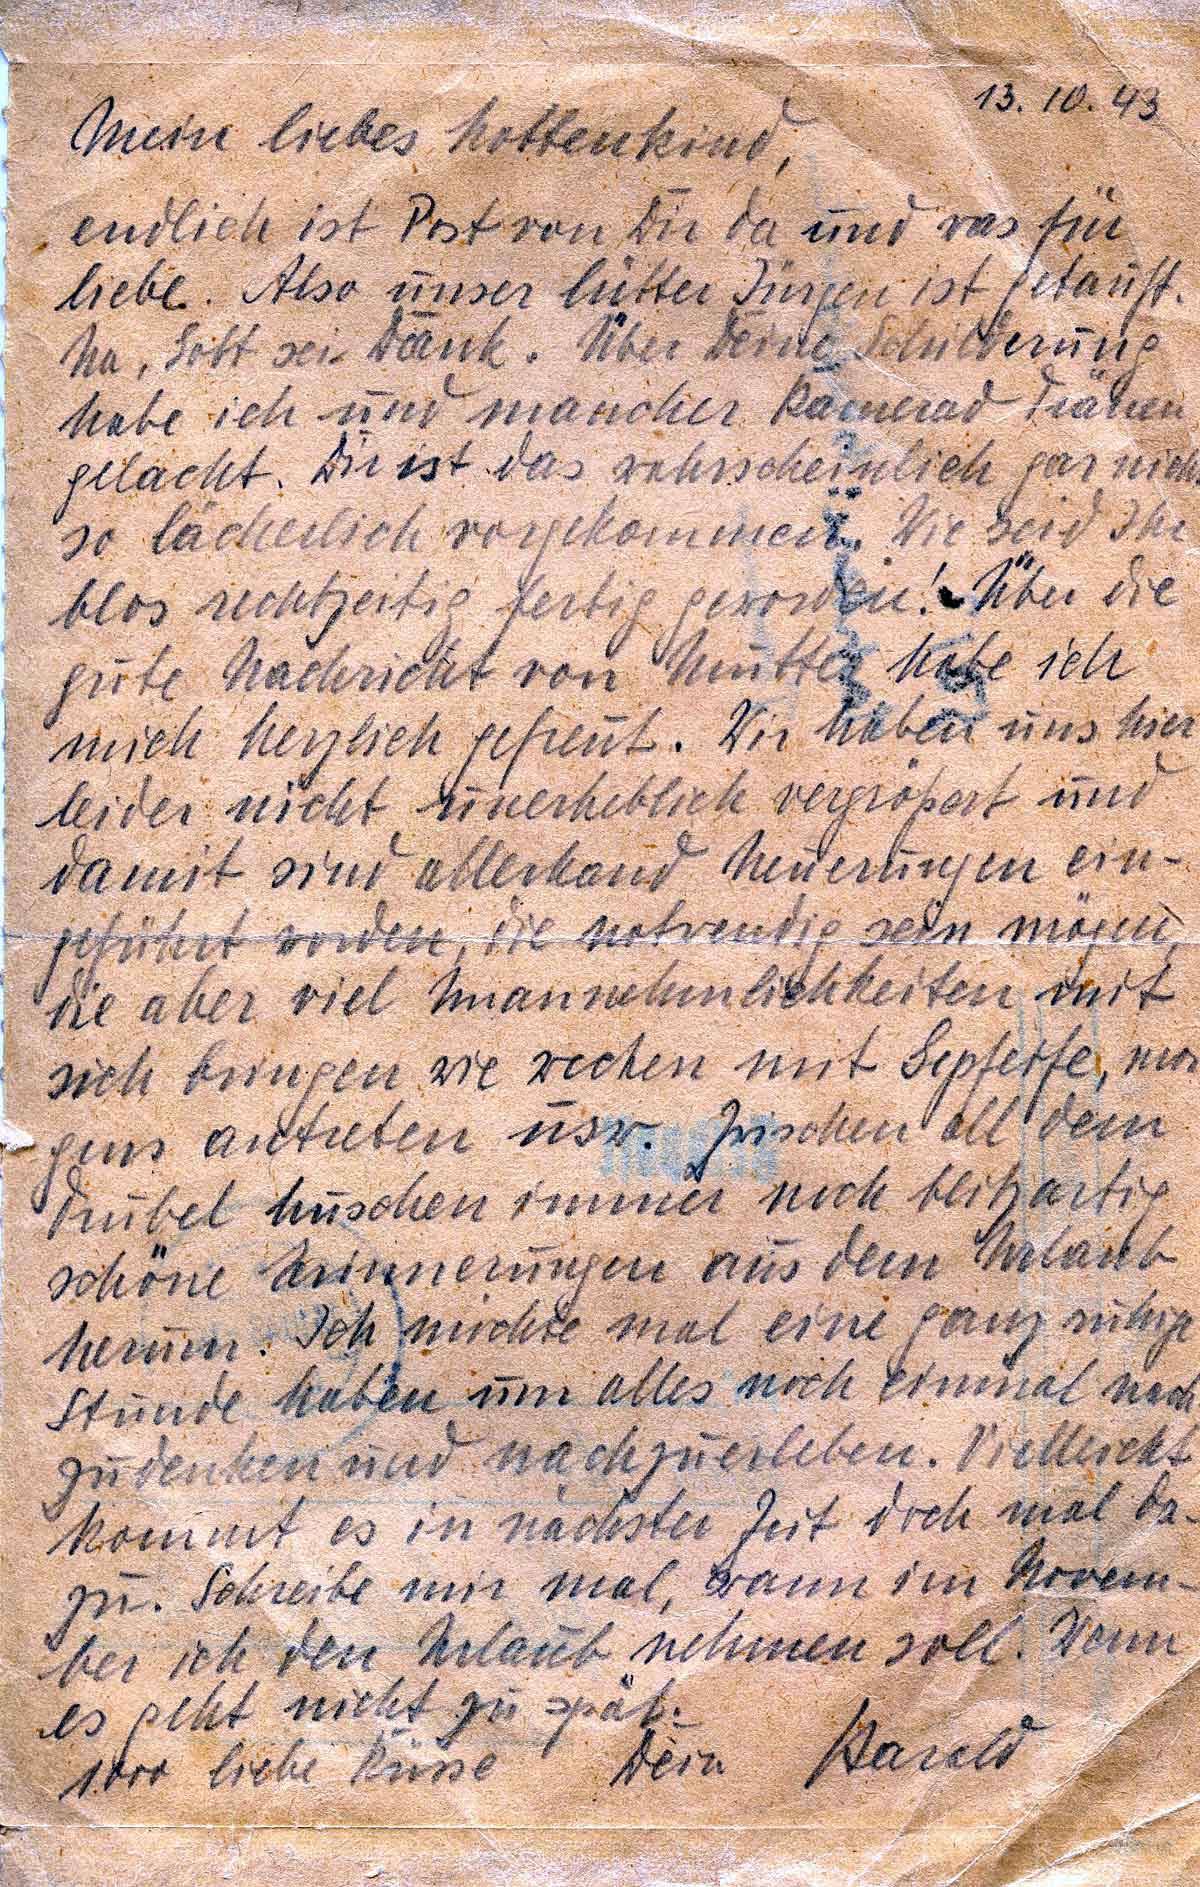 13. 10. 43
Mein liebes Mottenkind,
endlich ist Post von Dir da und was für
liebe. Also unser lütter Jürgen ist getauft.
Na, Gott sei Dank. Über Deine Schilderung
habe ich und mancher Kamerad Tränen
gelacht. Dir ist das wahrscheinlich gar nicht
so lächerlich vorgekommen. Wie seid Ihr
blos rechtzeitig fertig geworden! Über die
gute Nachricht von Mutter habe ich
mich herzlich gefreut. Wir haben uns hier
leider nicht unerheblich vergrößert und
damit sind allerhand Neuerungen ein-
geführt worden, die notwendig sein mögen,
die aber viel Unannehmlichkeiten mit
sich bringen wie wecken mit mor
gens antreten usw. Zwischen all dem
Trubel huschen immer noch blitzartig
schöne Erinnerungen aus dem Urlaub
herum. Ich möchte mal eine ganz ruhige
Stunde haben um alles noch einmal nach
zudenken und nachzuerleben. Vielleicht
kommt es in nächster Zeit doch mal da-
zu. Schreibe mir mal, wann im Novem-
ber ich den Urlaub nehmen soll. Wenn
es geht nicht zu spät.
1000 liebe Küsse Dein Harald